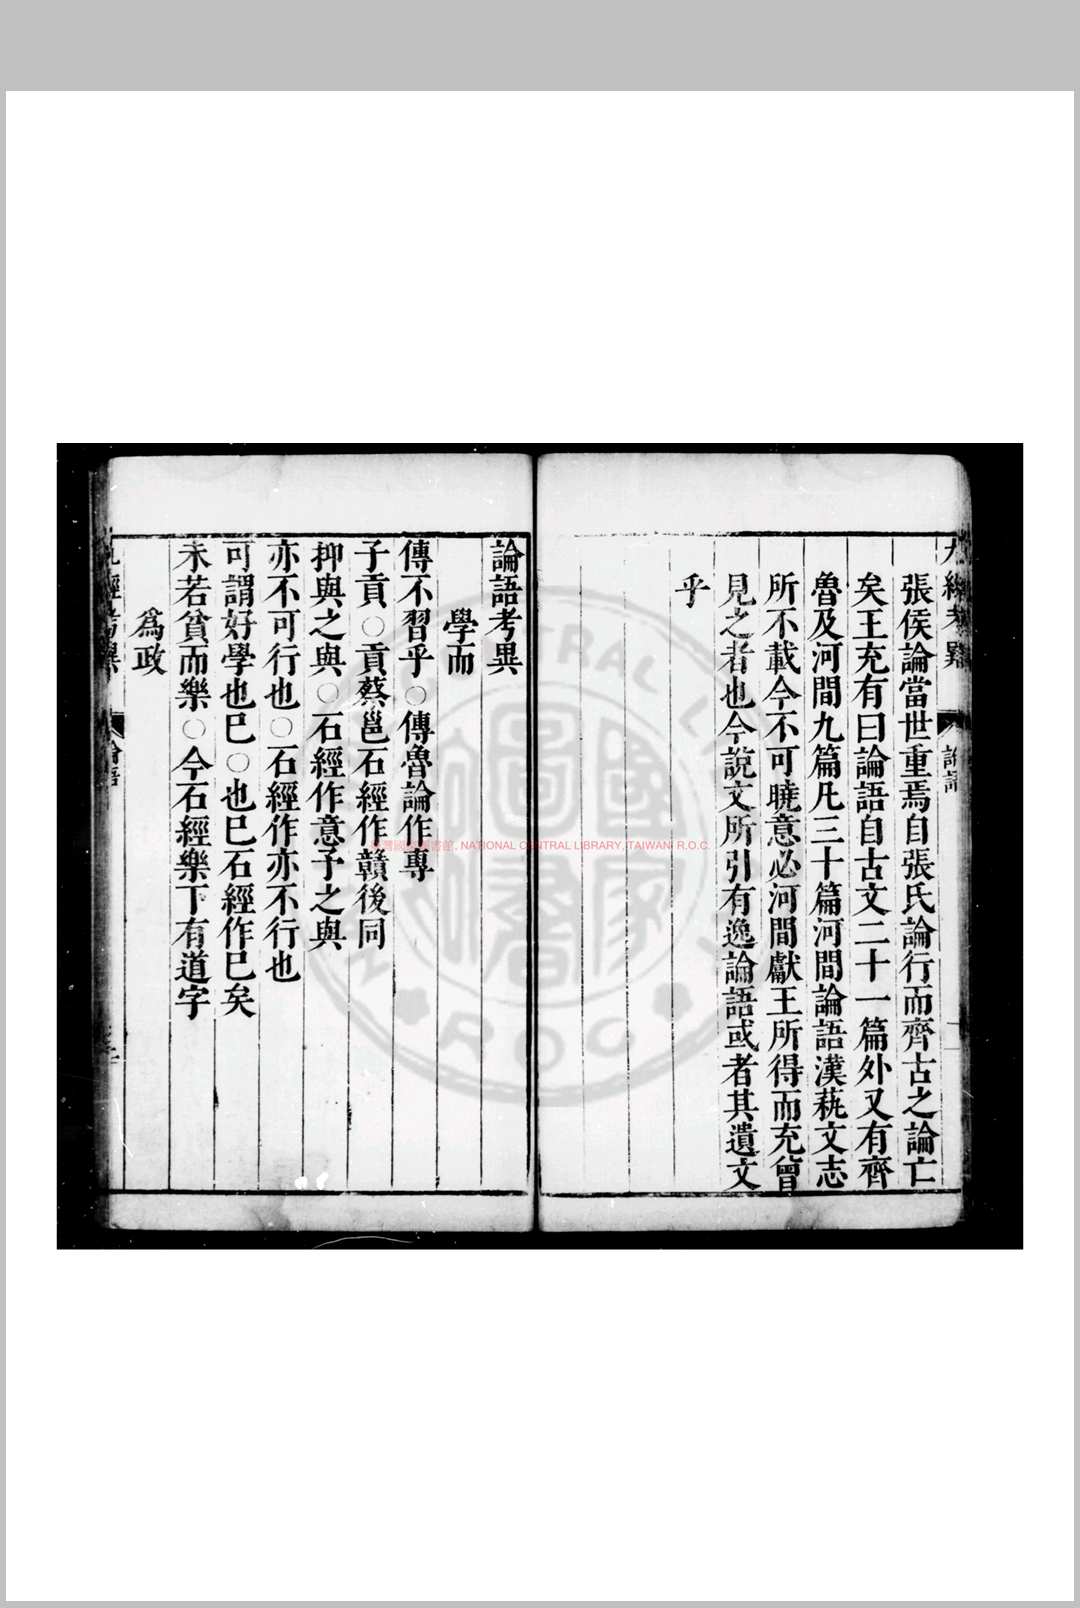 九經考異
論語
張侯論當世重焉自張氏論行而齊古之論亡
矣王充有曰論語自古文二十一篇外又有齊
魯及河間九篇凡三十篇河間論語漢蓺文志
所不載今不可曉意必河間獻王所得而充曾
見之者也今說文所引有逸論語或者其遺文
乎
論語考異
學而
傳不習乎○傳魯論作專
子貢○貢蔡邕石經作贛後同
抑與之與○石經作意予之與
亦不可行也○石經作亦不行也
可謂好學也已○也已石經作已矣
未若貧而樂○今石經樂下有道字
爲政
九經考異
論語
NATIONAL CENTRAL LIBRARY, TAIWAN R.O.C.